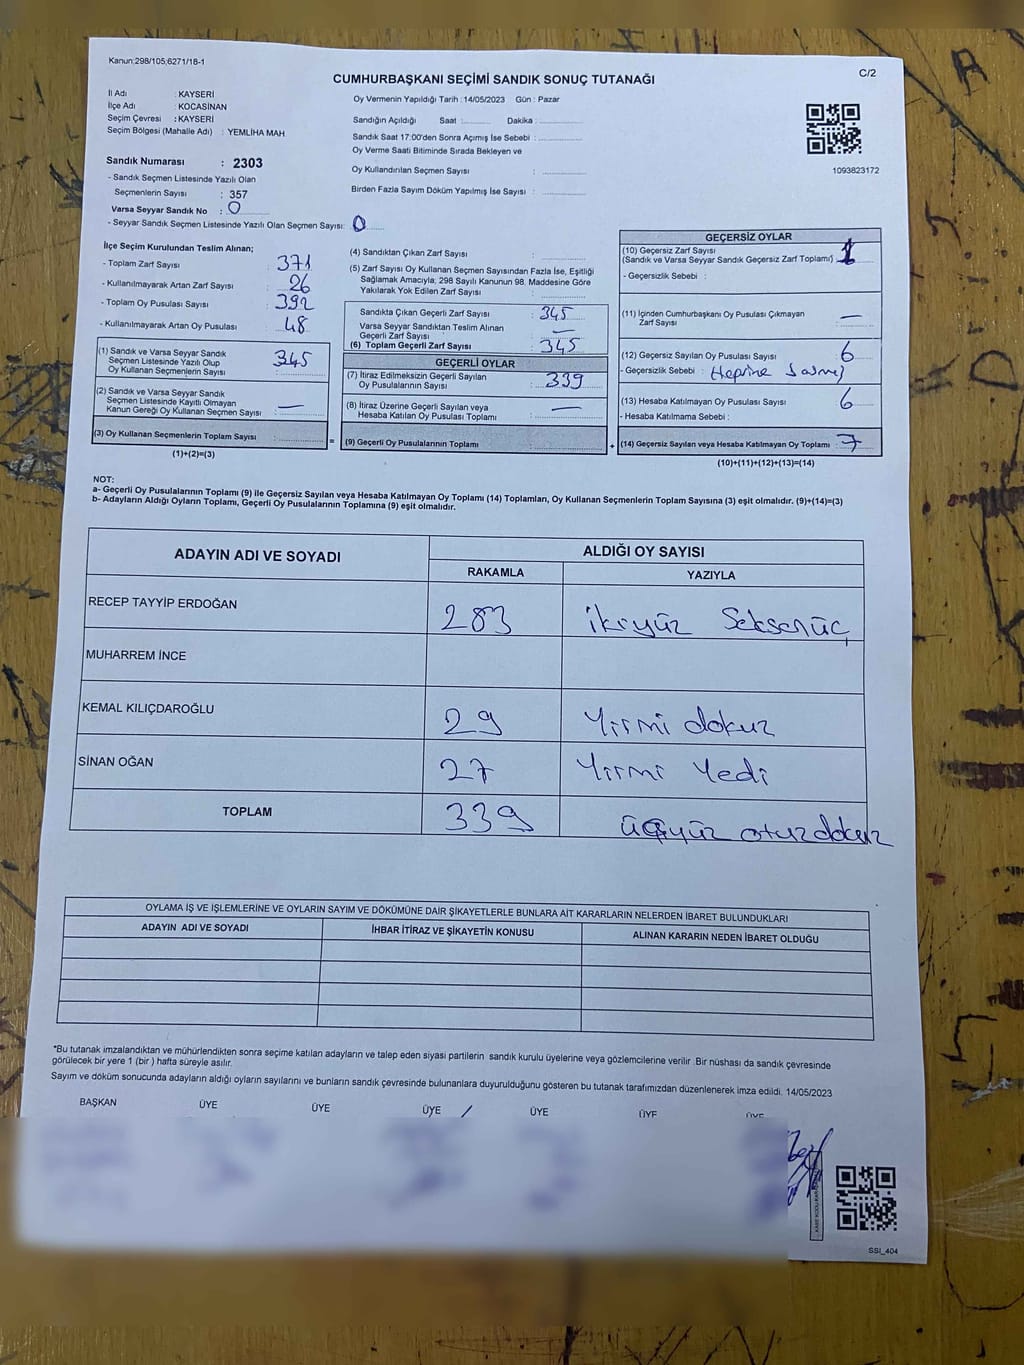 Kanun:298/105,6271/18-1
CUMHURBAŞKANI SEÇİMİ SANDIK SONUÇ TUTANAĞI
C/2
İl Adı : KAYSERİ
İlçe Adı : KOCASİNAN
Seçim Çevresi : KAYSERİ
Seçim Bölgesi (Mahalle Adı) : YEMLİHA MAH
Sandık Numarası : 2303
- Sandık Seçmen Listesinde Yazılı Olan
Seçmenlerin Sayısı : 357
Varsa Seyyar Sandık No : 0
- Seyyar Sandık Seçmen Listesinde Yazılı Olan Seçmen Sayısı: 0
Oy Vermenin Yapıldığı Tarih :14/05/2023 Gün : Pazar
Sandığın Açıldığı Saat :.......... Dakika :..........
Sandık Saat 17:00'den Sonra Açımış İse Sebebi :..........
Oy Verme Saati Bitiminde Sırada Bekleyen ve
Oy Kullandırılan Seçmen Sayısı : ..........
Birden Fazla Sayım Döküm Yapılmış İse Sayısı : ..........
1093823172
İlçe Seçim Kurulundan Teslim Alınan;
- Toplam Zarf Sayısı : 371
- Kullanılmayarak Artan Zarf Sayısı : 26
- Toplam Oy Pusulası Sayısı : 392
- Kullanılmayarak Artan Oy Pusulası : 48
(1) Sandık ve Varsa Seyyar Sandık
Seçmen Listesinde Yazılı Olup
Oy Kullanan Seçmenlerin Sayısı : 345
(2) Sandık ve Varsa Seyyar Sandık
Seçmen Listesinde Kayıtlı Olmayan
Kanun Gereği Oy Kullanan Seçmen Sayısı : —
(3) Oy Kullanan Seçmenlerin Toplam Sayısı : ..........
(1)+(2)=(3)
=
(4) Sandıktan Çıkan Zarf Sayısı : ..........
(5) Zarf Sayısı Oy Kullanan Seçmen Sayısından Fazla İse, Eşitliği
Sağlamak Amacıyla, 298 Sayılı Kanunun 98. Maddesine Göre
Yakılarak Yok Edilen Zarf Sayısı : ..........
Sandıkta Çıkan Geçerli Zarf Sayısı : 345
Varsa Seyyar Sandıktan Teslim Alınan
Geçerli Zarf Sayısı : —
(6) Toplam Geçerli Zarf Sayısı : 345
GEÇERLİ OYLAR
(7) İtiraz Edilmeksizin Geçerli Sayılan
Oy Pusulalarının Sayısı : 339
(8) İtiraz Üzerine Geçerli Sayılan veya
Hesaba Katılan Oy Pusulası Toplamı : —
(9) Geçerli Oy Pusulalarının Toplamı
+
GEÇERSİZ OYLAR
(10) Geçersiz Zarf Sayısı
(Sandık ve Varsa Seyyar Sandık Geçersiz Zarf Toplamı) 1
- Geçersizlik Sebebi :
(11) İçinden Cumhurbaşkanı Oy Pusulası Çıkmayan
Zarf Sayısı : —
(12) Geçersiz Sayılan Oy Pusulası Sayısı : 6
- Geçersizlik Sebebi : Heprine
(13) Hesaba Katılmayan Oy Pusulası Sayısı : 6
- Hesaba Katılmama Sebebi :
(14) Geçersiz Sayılan veya Hesaba Katılmayan Oy Toplamı : 7
(10)+(11)+(12)+(13)=(14)
NOT:
a- Geçerli Oy Pusulalarının Toplamı (9) ile Geçersiz Sayılan veya Hesaba Katılmayan Oy Toplamı (14) Toplamları, Oy Kullanan Seçmenlerin Toplam Sayısına (3) eşit olmalıdır. (9)+(14)=(3)
b- Adayların Aldığı Oyların Toplamı, Geçerli Oy Pusulalarının Toplamına (9) eşit olmalıdır.
ADAYIN ADI VE SOYADI ALDIĞI OY SAYISI
RAKAMLA YAZIYLA
RECEP TAYYİP ERDOĞAN 283 ikiyüz Seksenüç
MUHARREM İNCE
KEMAL KILIÇDAROĞLU 29 Yirmi dokuz
SİNAN OĞAN 27 Yirmi Yedi
TOPLAM 339 üçyüz otuzdokuz
OYLAMA İŞ VE İŞLEMLERİNE VE OYLARIN SAYIM VE DÖKÜMÜNE DAİR ŞİKAYETLERLE BUNLARA AİT KARARLARIN NELERDEN İBARET BULUNDUKLARI
ADAYIN ADI VE SOYADI İHBAR İTİRAZ VE ŞİKAYETİN KONUSU ALINAN KARARIN NEDEN İBARET OLDUĞU
*Bu tutanak imzalandıktan ve mühürlendikten sonra seçime katılan adayların ve talep eden siyasi partilerin sandık kurulu üyelerine veya gözlemcilerine verilir .Bir nüshası da sandık çevresinde
görülecek bir yere 1 (bir ) hafta süreyle asılır.
Sayım ve döküm sonucunda adayların aldığı oyların sayılarını ve bunların sandık çevresinde bulunanlara duyurulduğunu gösteren bu tutanak tarafımızdan düzenlenerek imza edildi. 14/05/2023
BAŞKAN ÜYE ÜYE ÜYE ÜYE ÜYE ÜYE
SSİ_404